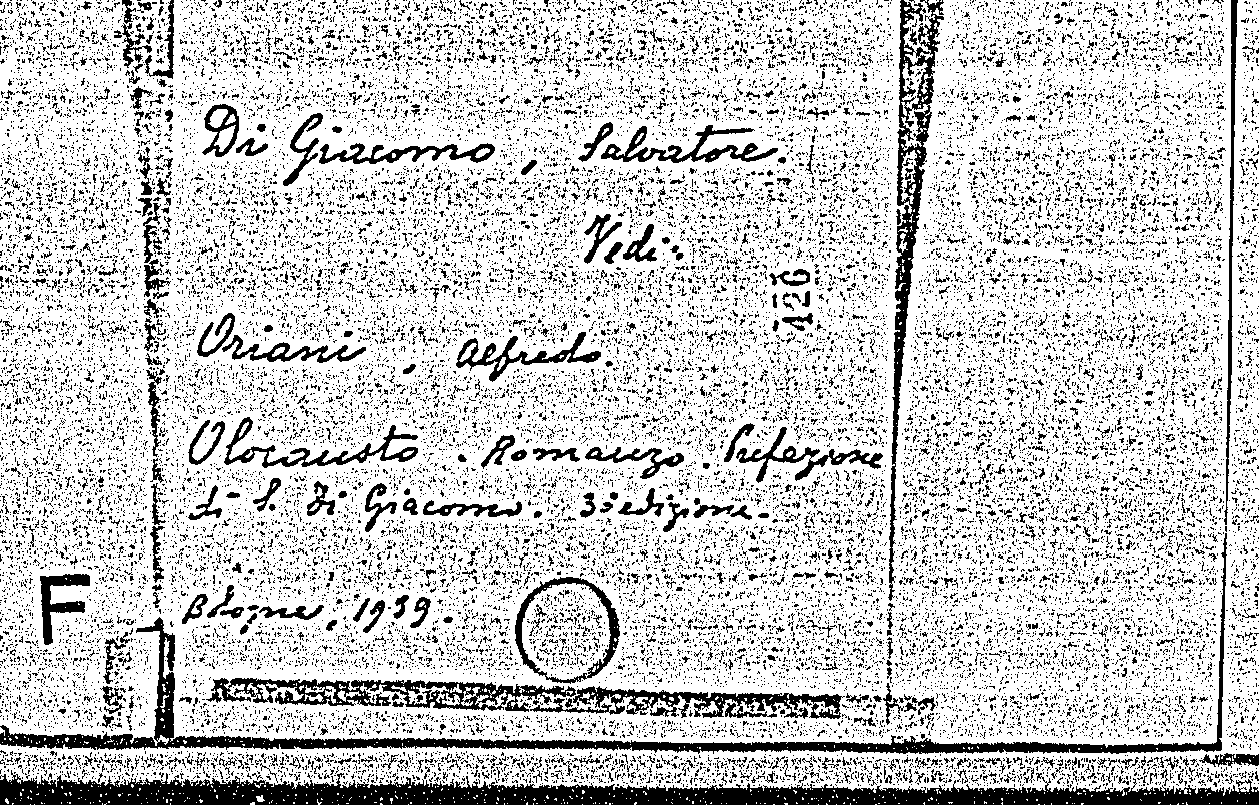 Di Giacomo, Salvatore.
Vedi:
426
Oriani, Alfredo.
Olocausto. Romanzo. Prefazione
di S. Di Giacomo. 3ª edizione.
F
Bologna, 1939.